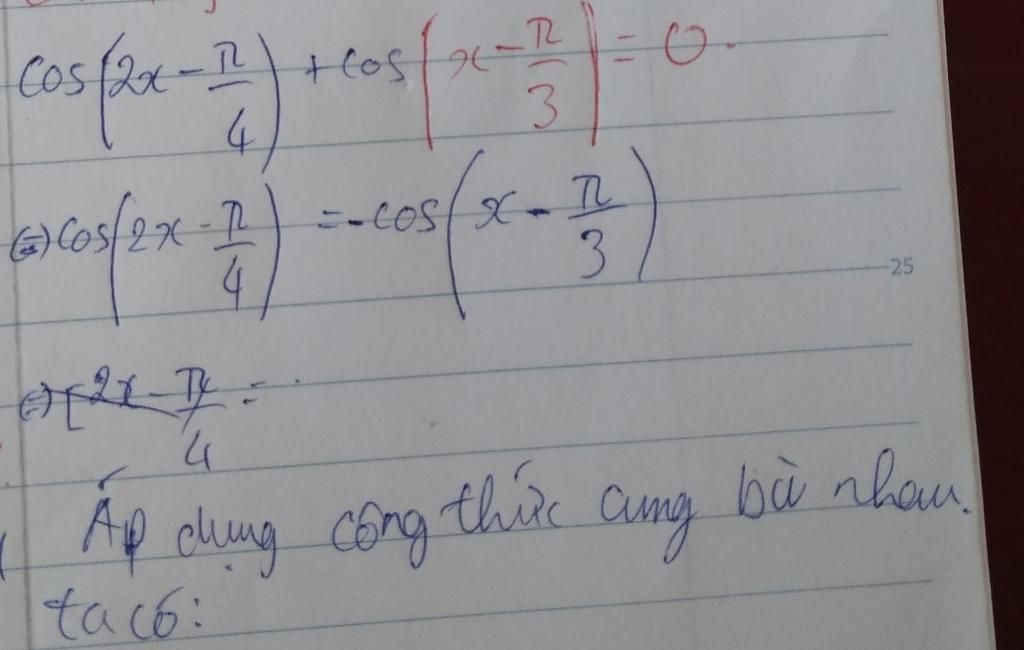 cos(2x - π/4) + cos(x - π/3) = 0.
(=) cos(2x - π/4) = - cos(x - π/3)
25
(=) [2x - π/4 = .
Áp dụng công thức cung bù nhau.
ta có: